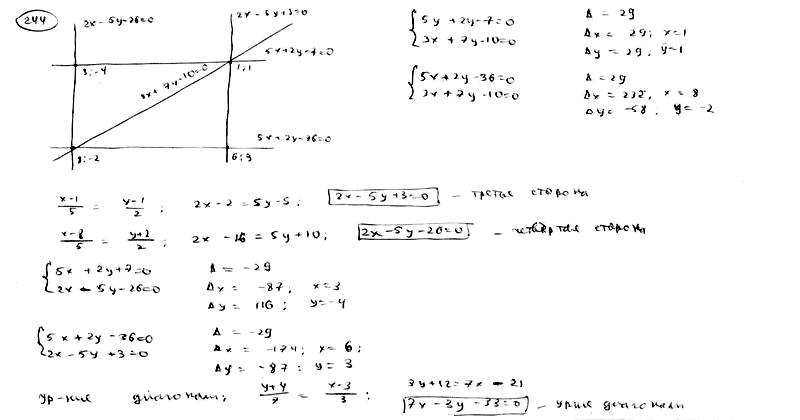 244
2x - 5y - 26 = 0
2x - 5y + 3 = 0
5x + 2y - 7 = 0
3; -4
3x + 7y - 10 = 0
1; 1
5x + 2y - 36 = 0
8; -2
6; 3
{ 5y + 2y - 7 = 0
3x + 7y - 10 = 0
Δ = 29
Δx = 29; x = 1
Δy = 29; y = 1
{ 5x + 2y - 36 = 0
3x + 7y - 10 = 0
Δ = 29
Δx = 232, x = 8
Δy = -58, y = -2
(x-1)/5 = (y-1)/2; 2x - 2 = 5y - 5; 2x - 5y + 3 = 0 - третья сторона
(x-8)/5 = (y+2)/2; 2x - 16 = 5y + 10; 2x - 5y - 26 = 0 - четвёртая сторона
{ 5x + 2y + 7 = 0
2x - 5y - 26 = 0
Δ = -29
Δx = -87; x = 3
Δy = 116; y = -4
{ 5x + 2y - 36 = 0
2x - 5y + 3 = 0
Δ = -29
Δx = -174; x = 6;
Δy = -87; y = 3
Ур-ние диагонали; (y+4)/7 = (x-3)/3; 3y + 12 = 7x - 21
7x - 3y - 33 = 0 - ур-ние диагонали